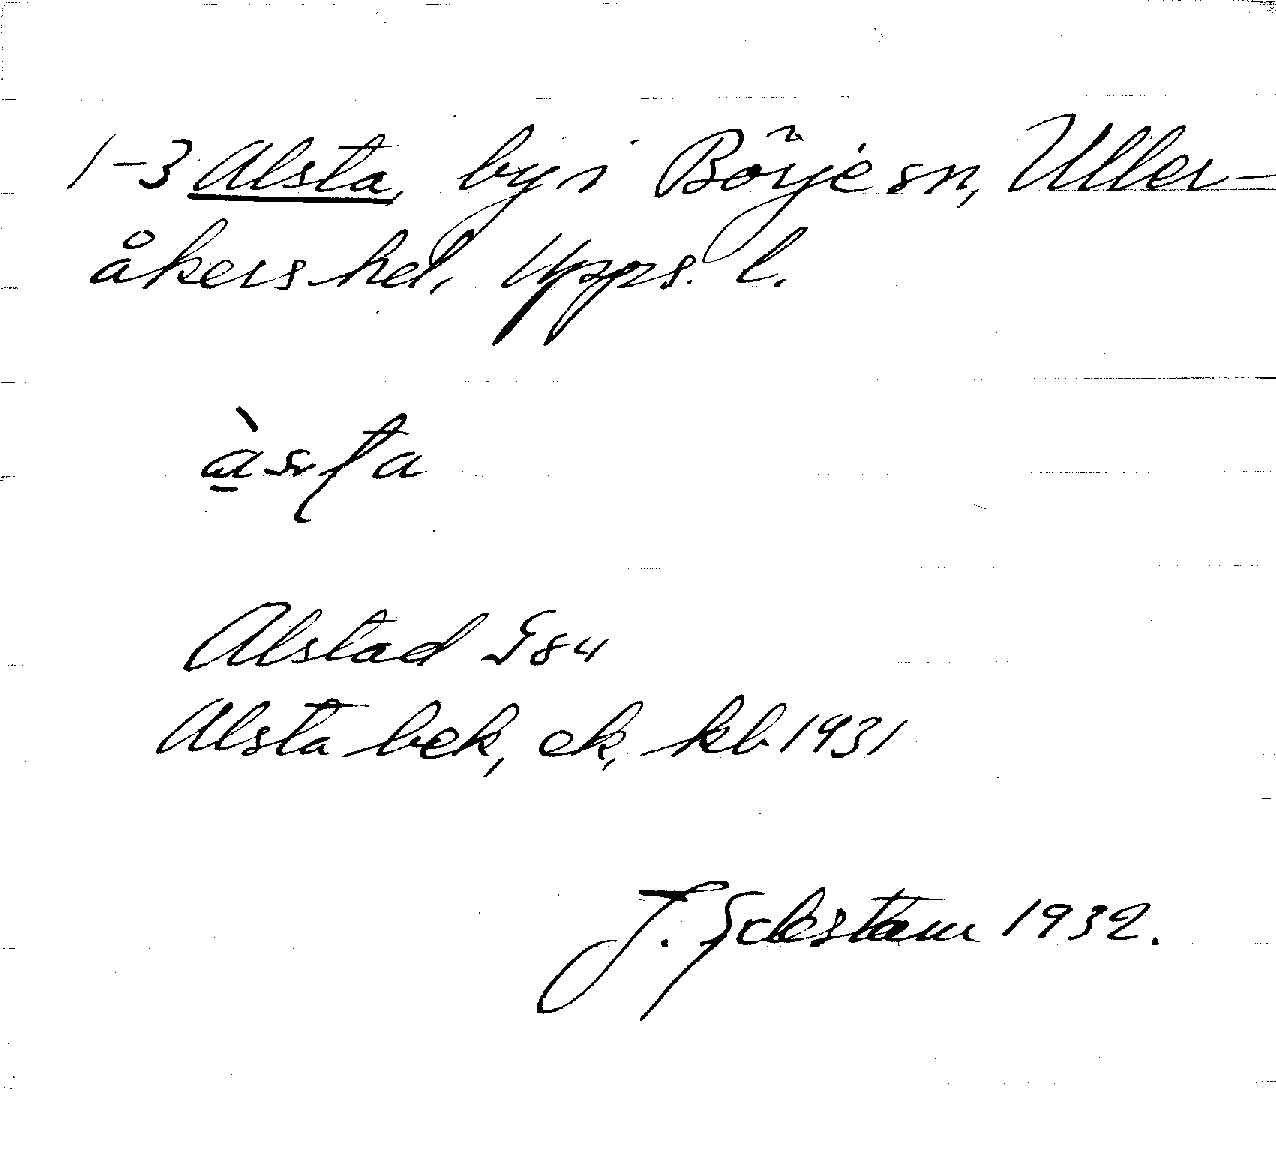 1-3 Alsta, by i Börje sn, Uller-
åkers hd, Upps. l.
àsta
Alstad G84
Alsta bek, ek, kb 1931
J. Götlestam 1932.